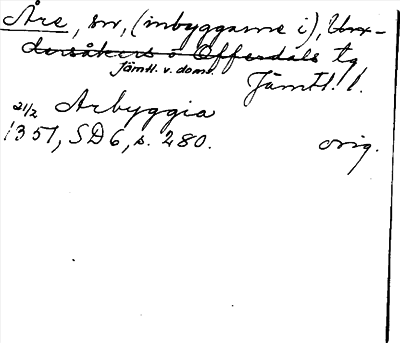 Åre, sn, (inbyggarne i), Und-
dersåkers o Offerdals tg
Jämtl. v. doms.
Jämtl. l.
21/2 Arbyggia
1351, SD 6, s. 280. orig.